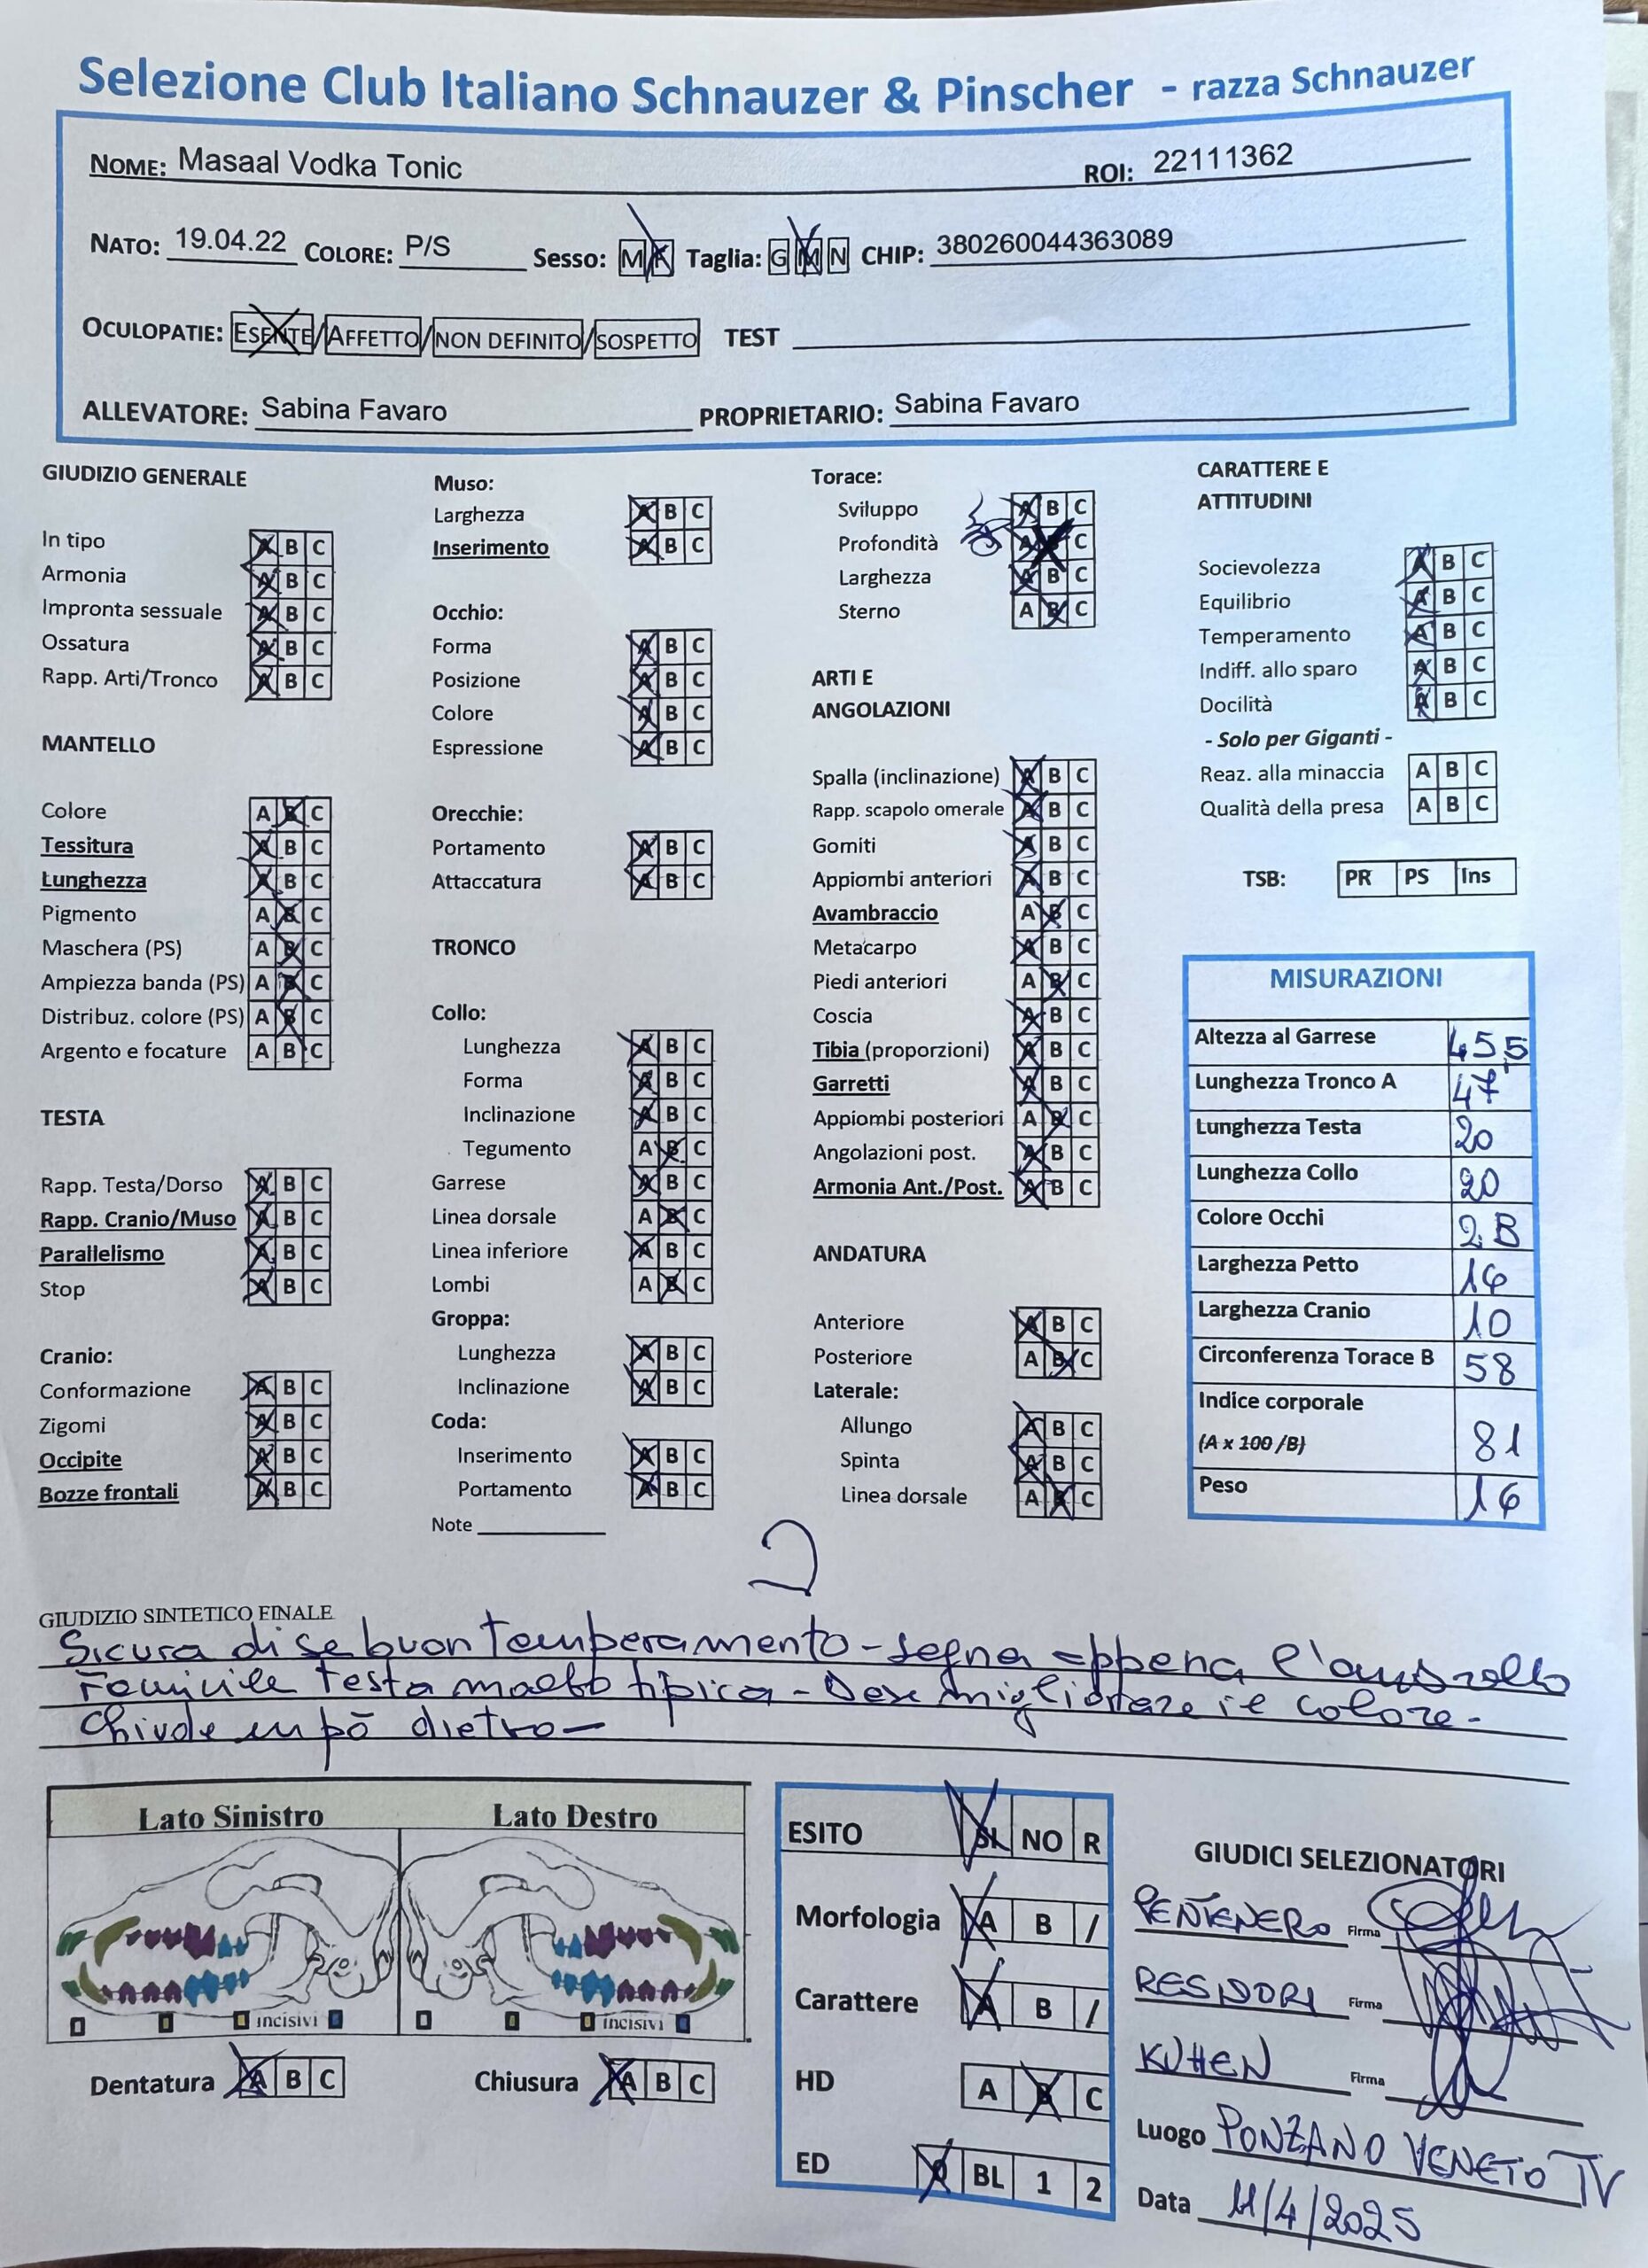 Selezione Club Italiano Schnauzer & Pinscher - razza Schnauzer
NOME: Masaal Vodka Tonic ROI: 22111362
NATO: 19.04.22 COLORE: P/S Sesso: M F Taglia: G M N CHIP: 380260044363089
OCULOPATIE: ESENTE/AFFETTO/NON DEFINITO/SOSPETTO TEST
ALLEVATORE: Sabina Favaro PROPRIETARIO: Sabina Favaro
GIUDIZIO GENERALE
In tipo A B C
Armonia A B C
Impronta sessuale A B C
Ossatura A B C
Rapp. Arti/Tronco A B C
MANTELLO
Colore A B C
Tessitura A B C
Lunghezza A B C
Pigmento A B C
Maschera (PS) A B C
Ampiezza banda (PS) A B C
Distribuz. colore (PS) A B C
Argento e focature A B C
TESTA
Rapp. Testa/Dorso A B C
Rapp. Cranio/Muso A B C
Parallelismo A B C
Stop A B C
Cranio:
Conformazione A B C
Zigomi A B C
Occipite A B C
Bozze frontali A B C
Muso:
Larghezza A B C
Inserimento A B C
Occhio:
Forma A B C
Posizione A B C
Colore A B C
Espressione A B C
Orecchie:
Portamento A B C
Attaccatura A B C
TRONCO
Collo:
Lunghezza A B C
Forma A B C
Inclinazione A B C
Tegumento A B C
Garrese A B C
Linea dorsale A B C
Linea inferiore A B C
Lombi A B C
Groppa:
Lunghezza A B C
Inclinazione A B C
Coda:
Inserimento A B C
Portamento A B C
Note
Torace:
Sviluppo A B C
Profondità A B C
Larghezza A B C
Sterno A B C
ARTI E
ANGOLAZIONI
Spalla (inclinazione) A B C
Rapp. scapolo omerale A B C
Gomiti A B C
Appiombi anteriori A B C
Avambraccio A B C
Metacarpo A B C
Piedi anteriori A B C
Coscia A B C
Tibia (proporzioni) A B C
Garretti A B C
Appiombi posteriori A B C
Angolazioni post. A B C
Armonia Ant./Post. A B C
ANDATURA
Anteriore A B C
Posteriore A B C
Laterale:
Allungo A B C
Spinta A B C
Linea dorsale A B C
CARATTERE E
ATTITUDINI
Socievolezza A B C
Equilibrio A B C
Temperamento A B C
Indiff. allo sparo A B C
Docilità A B C
- Solo per Giganti -
Reaz. alla minaccia A B C
Qualità della presa A B C
TSB: PR PS Ins
MISURAZIONI
Altezza al Garrese 45,5
Lunghezza Tronco A 47
Lunghezza Testa 20
Lunghezza Collo 20
Colore Occhi 2B
Larghezza Petto 16
Larghezza Cranio 10
Circonferenza Torace B 58
Indice corporale
(A x 100 /B) 81
Peso 16
2
GIUDIZIO SINTETICO FINALE
Sicura di se buon temperamento - segna appena
Feminile testa molto tipica - Deve migliorare il colore -
Chiude un pò dietro -
Lato Sinistro Lato Destro
incisivi incisivi
Dentatura A B C Chiusura A B C
ESITO SI NO R
Morfologia A B /
Carattere A B /
HD A B C
ED 0 BL 1 2
GIUDICI SELEZIONATORI
PENTENERO Firma
RESIDORI Firma
KUHEN Firma
Luogo PONZANO VENETO TV
Data 11/4/2025